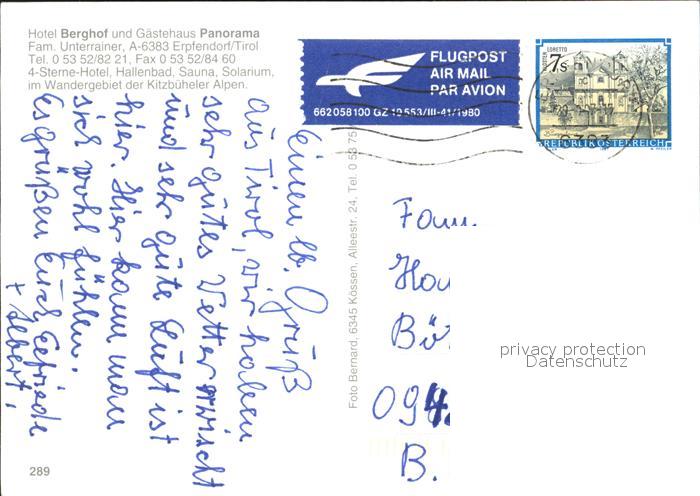 Hotel Berghof und Gästehaus Panorama
Fam. Unterrainer, A-6383 Erpfendorf/Tirol
Tel. 0 53 52/82 21, Fax 0 53 52/84 60
4-Sterne-Hotel, Hallenbad, Sauna, Solarium,
im Wandergebiet der Kitzbüheler Alpen.
FLUGPOST
AIR MAIL
PAR AVION
662 058 100 GZ 19 553/III-41/1980
LORETTO
7s
REPUBLIK ÖSTERREICH
Einen lb. Gruß
aus Tirol, wir haben
sehr gutes Wetter
und sehr gute Luft ist
hier. Hier kann man
sich wohl fühlen.
Es grüßen Euch Elfriede
+ Albert.
Foto Bernard, 6345 Kössen, Alleestr. 24, Tel. 0 53 75
Fam.
094
B.
privacy protection
Datenschutz
289